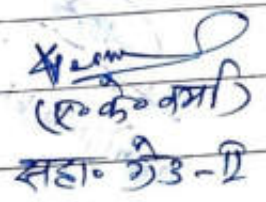 (ए० के० वर्मा)
सहा० ग्रेड-II